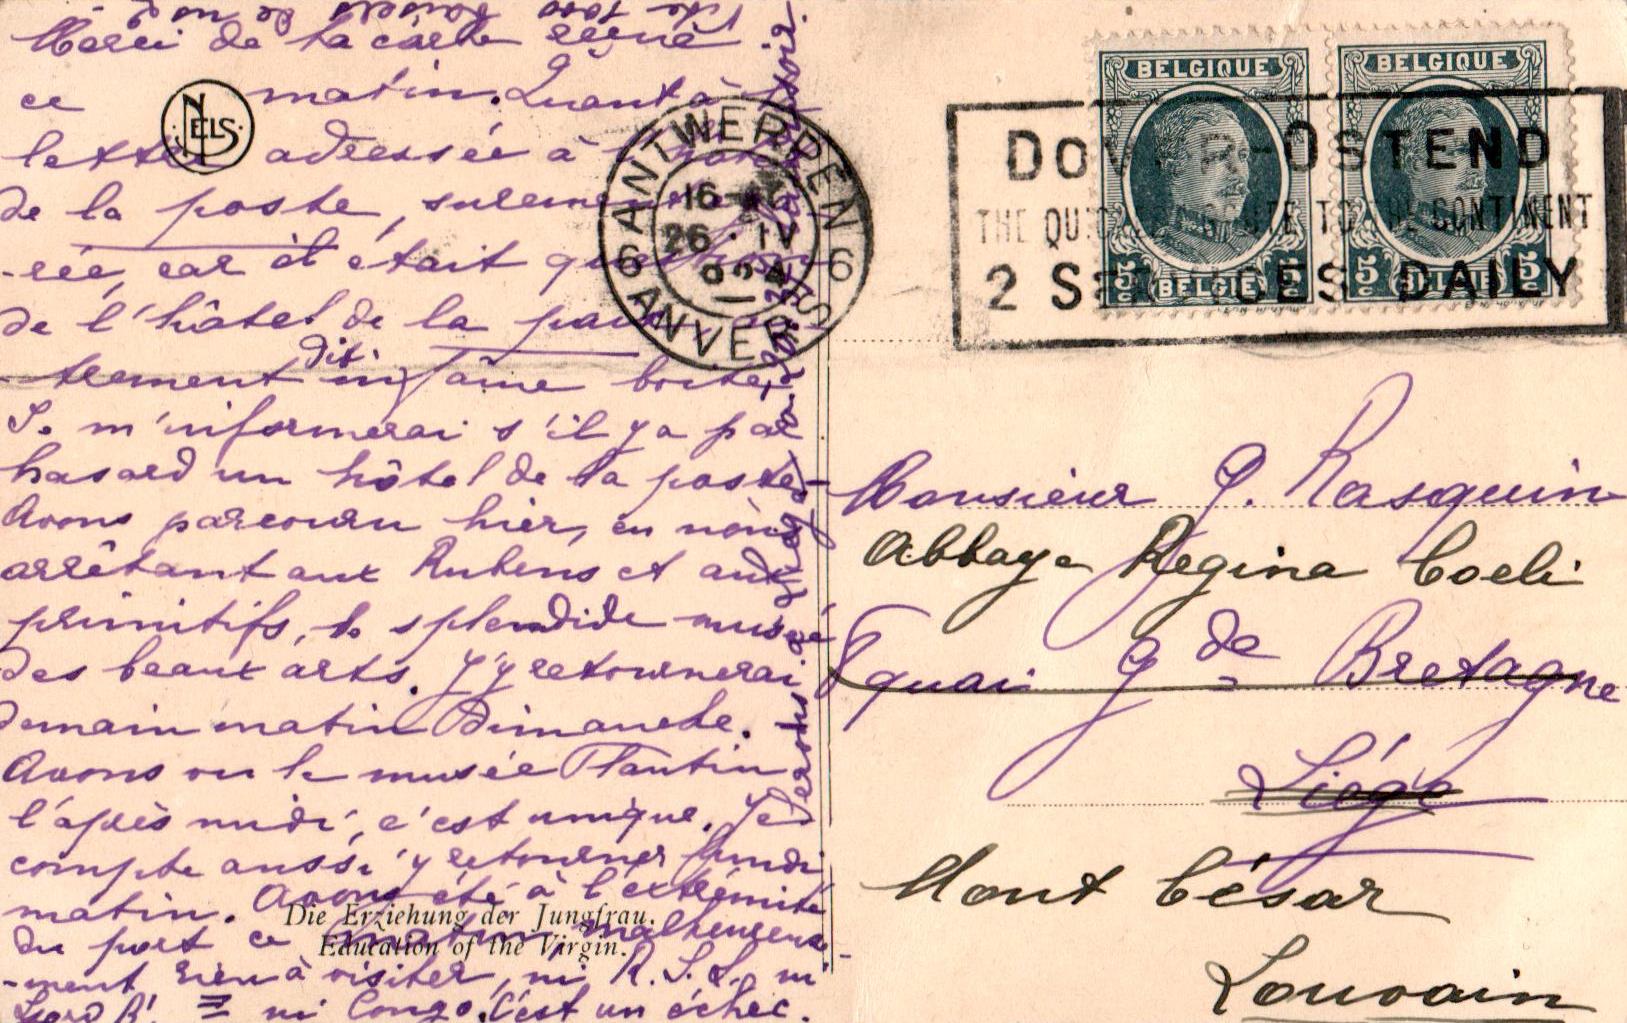 Vite 1000 baisers de nous
Merci de ta carte reçue
ce matin. Quant à la
lettre adressée à l'hotel
de la poste, surement
-rée, car il était question
de l'hôtel de la paix
-trement dit infâme boite,
Je m'informerai s'il y a par
hasard un hôtel de la poste.
Avons parcouru hier, en nous
arrêtant aux Rubens et aux
primitifs, le splendide musée
des beaux arts. J'y retournerai
demain matin Dimanche.
Avons vu le musée Plantin
l'après midi, c'est unique. Je
compte aussi y retourner lundi
matin. Avons été à l'extrémité
du port ce matin, malheureuse-
-ment rien à visiter, ni R.S.L. ni
ni Congo. C'est un échec.
Serons à Liège
soir.
NELS
Die Erziehung der Jungfrau.
Education of the Virgin.
ANTWERPEN
6 6
ANVERS
16
26 · IV
BELGIQUE
5c BELGIË 5c
BELGIQUE
5c BELGIË 5c
DOVER-OSTEND
THE QUICKEST ROUTE TO THE CONTINENT
2 SERVICES DAILY
Monsieur G. Rasquin
Abbaye Regina Coeli
quai Gde Bretagne
Liége
Mont César
Louvain